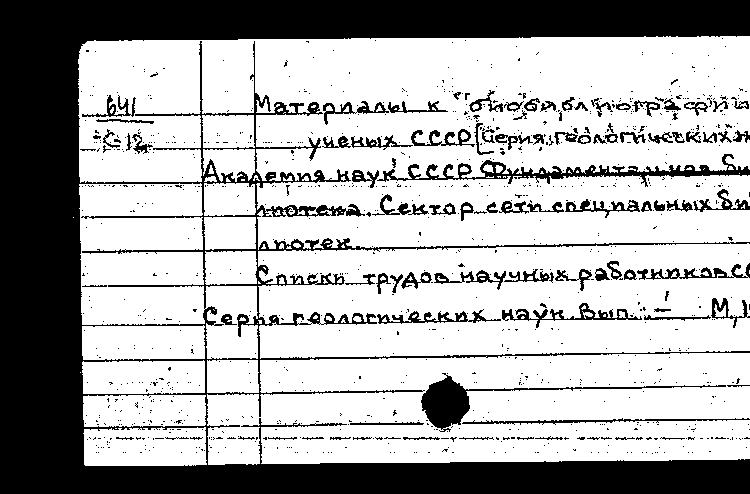 641
С-12
Материалы к "биобиблиографии
ученых СССР [Серия геологических н
Академия наук СССР Фундаментальная биб
лиотека. Сектор сети специальных биб
лиотек.
Списки трудов научных работников СС
Серия геологических наук. Вып. : – М, 1